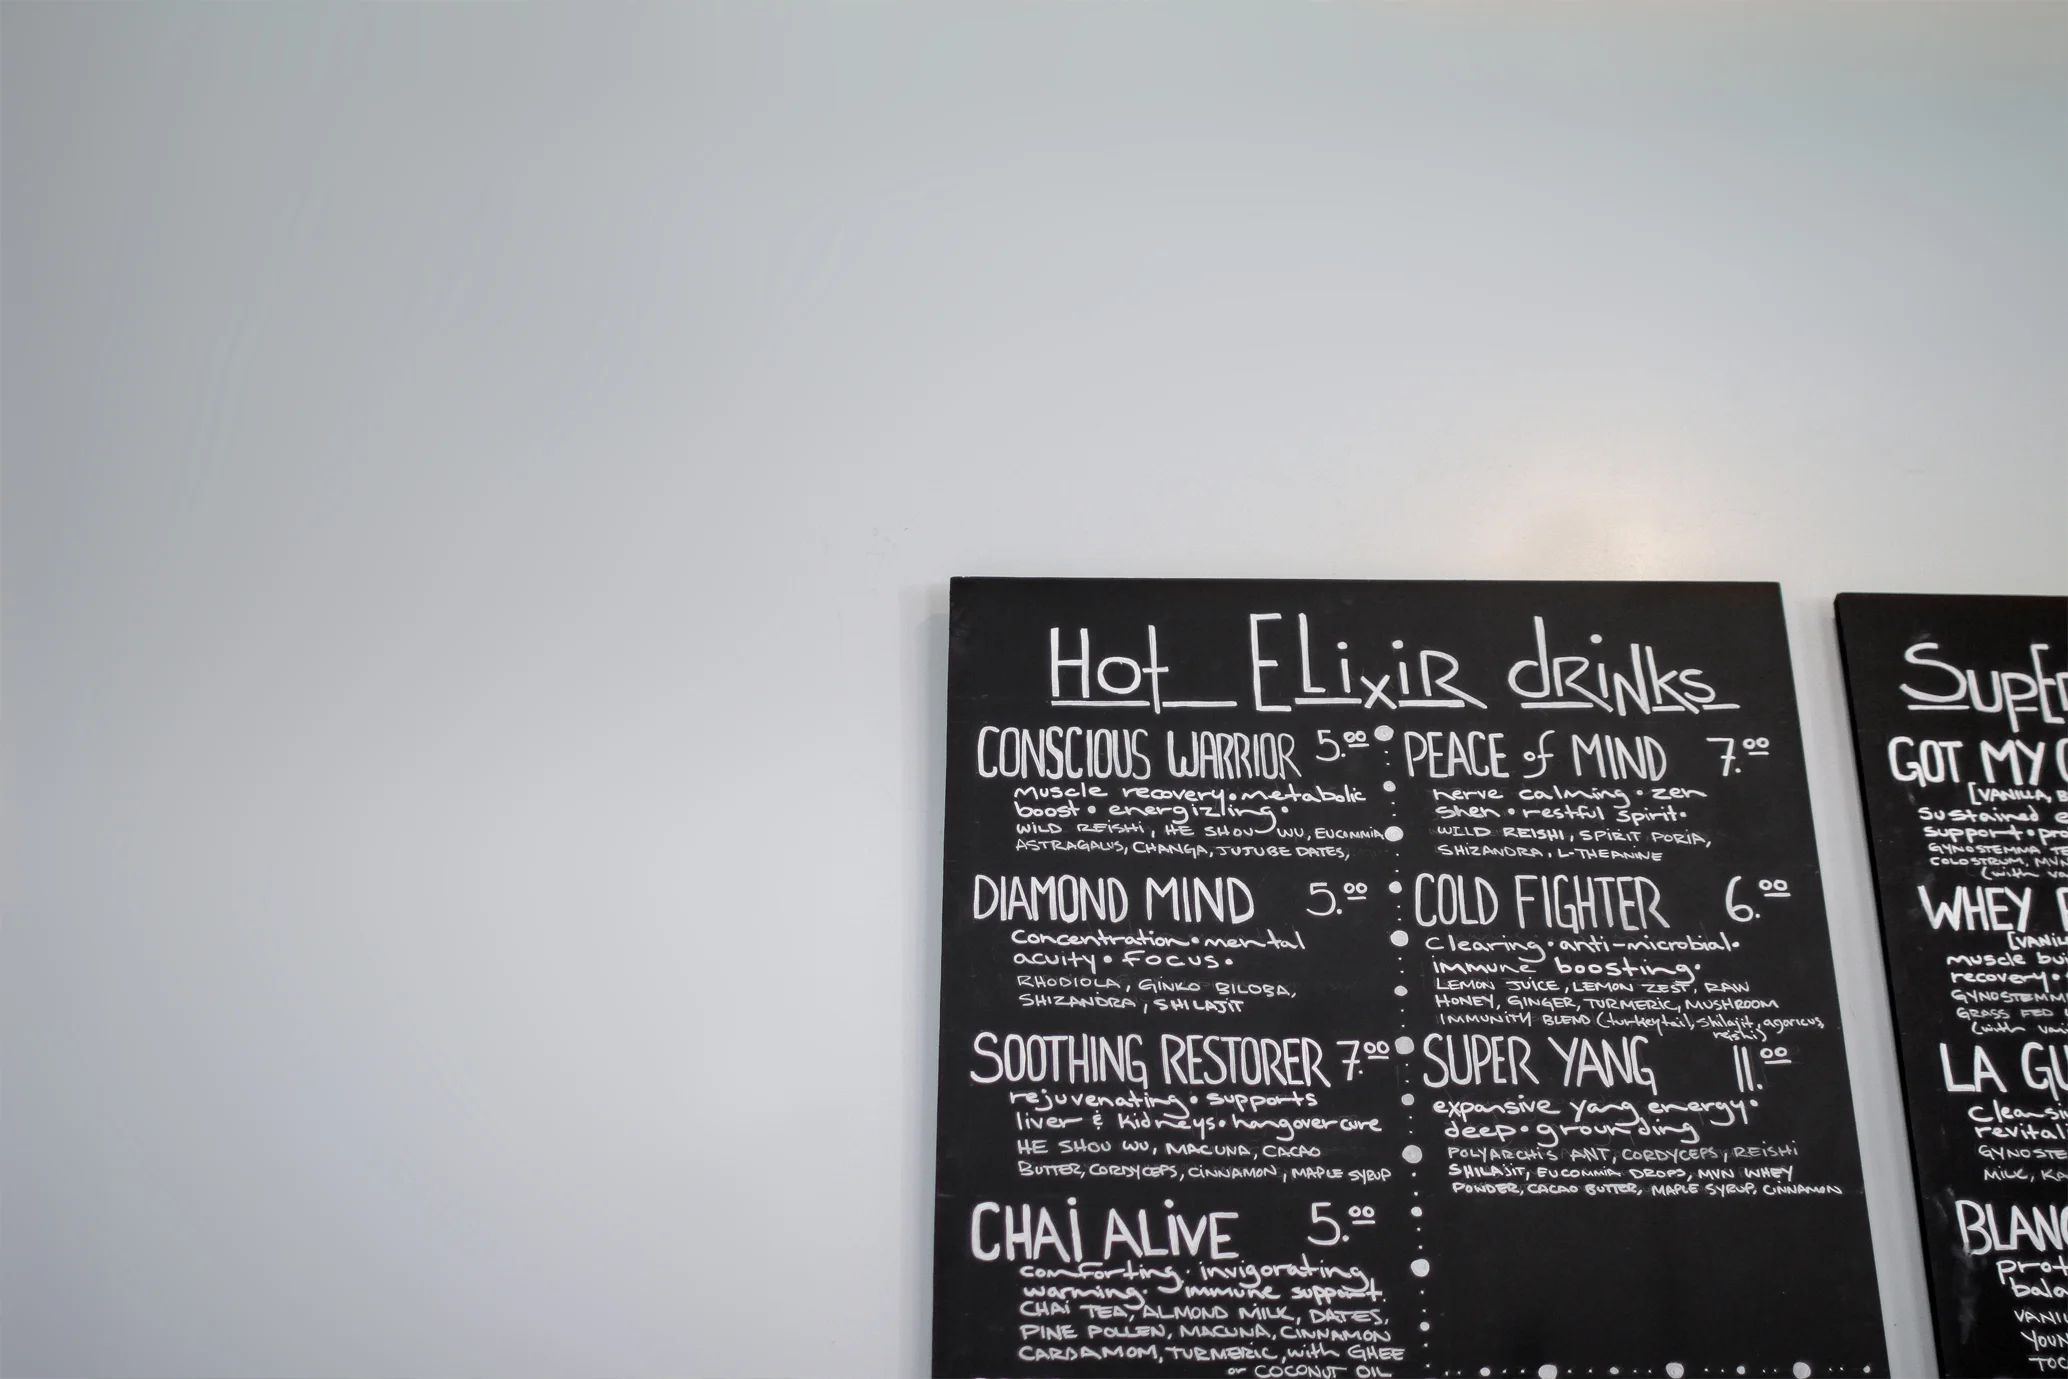 Hot ELixiR dRiNks
CONSCIOUS WARRIOR 5.00
muscle recovery • metabolic
boost • energizling •
WILD REISHI, HE SHOU WU, EUCOMMIA
ASTRAGALUS, CHANGA, JUJUBE DATES,
DIAMOND MIND 5.00
Concentration • mental
acuity • FOCUS •
RHODIOLA, GINKO BILOBA,
SHIZANDRA, SHILAJIT
SOOTHING RESTORER 7.00
rejuvenating • supports
liver & kidneys • hangover cure
HE SHOU WU, MACUNA, CACAO
BUTTER, CORDYCEPS, CINNAMON, MAPLE SYRUP
CHAI ALIVE 5.00
comforting • invigorating
warming • immune support.
CHAI TEA, ALMOND MILK, DATES,
PINE POLLEN, MACUNA, CINNAMON
CARDAMOM, TURMERIC, with GHEE
or COCONUT OIL
PEACE of MIND 7.00
nerve calming • zen
shen • restful spirit •
WILD REISHI, SPIRIT PORIA,
SHIZANDRA, L-THEANINE
COLD FIGHTER 6.00
Clearing • anti-microbial •
immune boosting •
LEMON JUICE, LEMON ZEST, RAW
HONEY, GINGER, TURMERIC, MUSHROOM
IMMUNITY BLEND (turkeytail, shilajit, agaricus,
reishi)
SUPER YANG 11.00
expansive yang energy •
deep • grounding
POLYARCHIS ANT, CORDYCEPS, REISHI
SHILAJIT, EUCOMMIA DROPS, MVN WHEY
POWDER, CACAO BUTTER, MAPLE SYRUP, CINNAMON
GOT MY
[VANILLA,
Sustained
support •
GYNOSTEMMA
COLOSTRUM,
(with
WHEY
muscle
recovery •
GRASS FED
(with
LA
MILK,